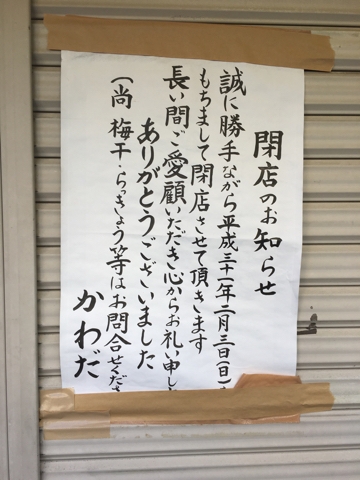 閉店のお知らせ
誠に勝手ながら平成三十一年二月三日(日)を
もちまして閉店させて頂きます
長い間ご愛顧いただき心からお礼い申し
ありがとうございました
(尚 梅干・らっきょう等はお問合せくださ
かわだ